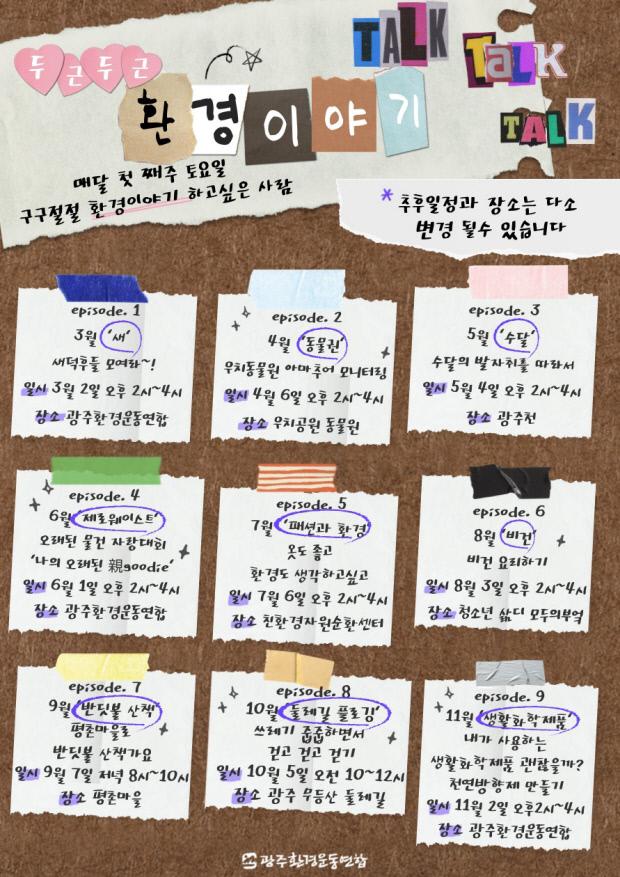 두근두근
환경이야기
TALK
TALK
TALK
매달 첫 째주 토요일
구구절절 환경이야기 하고싶은 사람
* 추후일정과 장소는 다소
변경 될수 있습니다
episode. 1
3월 '새'
새덕후들 모여라~!
일시 3월 2일 오후 2시~4시
장소 광주환경운동연합
episode. 2
4월 '동물권'
우치동물원 아마추어 모니터링
일시 4월 6일 오후 2시~4시
장소 우치공원 동물원
episode. 3
5월 '수달'
수달의 발자취를 따라서
일시 5월 4일 오후 2시~4시
장소 광주천
episode. 4
6월 '제로웨이스트'
오래된 물건 자랑대회
'나의 오래된 親goodie'
일시 6월 1일 오후 2시~4시
장소 광주환경운동연합
episode. 5
7월 '패션과 환경'
옷도 좋고
환경도 생각하고싶고
일시 7월 6일 오후 2시~4시
장소 친환경자원순환센터
episode. 6
8월 '비건'
비건 요리하기
일시 8월 3일 오후 2시~4시
장소 청소년 삶디 모두의부엌
episode. 7
9월 '반딧불 산책'
평촌마을로
반딧불 산책가요
일시 9월 7일 저녁 8시~10시
장소 평촌마을
episode. 8
10월 '둘레길 플로깅'
쓰레기 줍줍하면서
걷고 걷고 걷기
일시 10월 5일 오전 10~12시
장소 광주 무등산 둘레길
episode. 9
11월 '생활화학제품'
내가 사용하는
생활화학제품 괜찮을까?
천연방향제 만들기
일시 11월 2일 오후2시~4시
장소 광주환경운동연합
광주환경운동연합